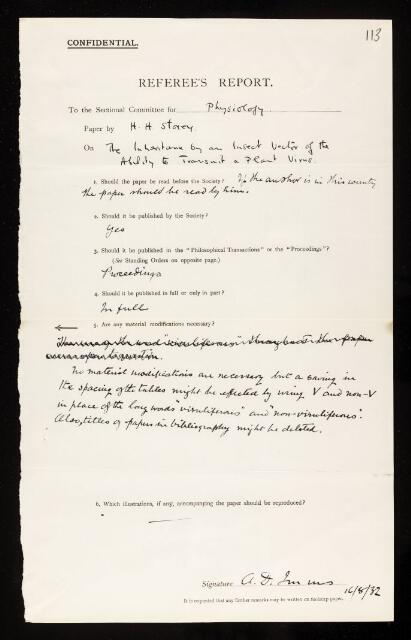 113
CONFIDENTIAL.
REFEREE'S REPORT.
To the Sectional Committee for Physiology
Paper by H. H Storey
On The Inheritance by an Insect Vector of the
Ability to Transmit a Plant Virus.
1. Should the paper be read before the Society? If the author is in this country
the paper should be read by him.
2. Should it be published by the Society?
Yes
3. Should it be published in the "Philosophical Transactions" or the "Proceedings"?
(See Standing Orders on opposite page.)
Proceedings
4. Should it be published in full or only in part?
In full
5. Are any material modifications necessary?
No material modifications are necessary but a saving in
the spacing of the tables might be effected by using V and non-V
in place of the long words "viruliferous" and "non-viruliferous".
Also, titles of papers in bibliography might be deleted.
6. Which illustrations, if any, accompanying the paper should be reproduced?
Signature A. D. Imms
16/8/32
It is requested that any further remarks may be written on foolscap paper.